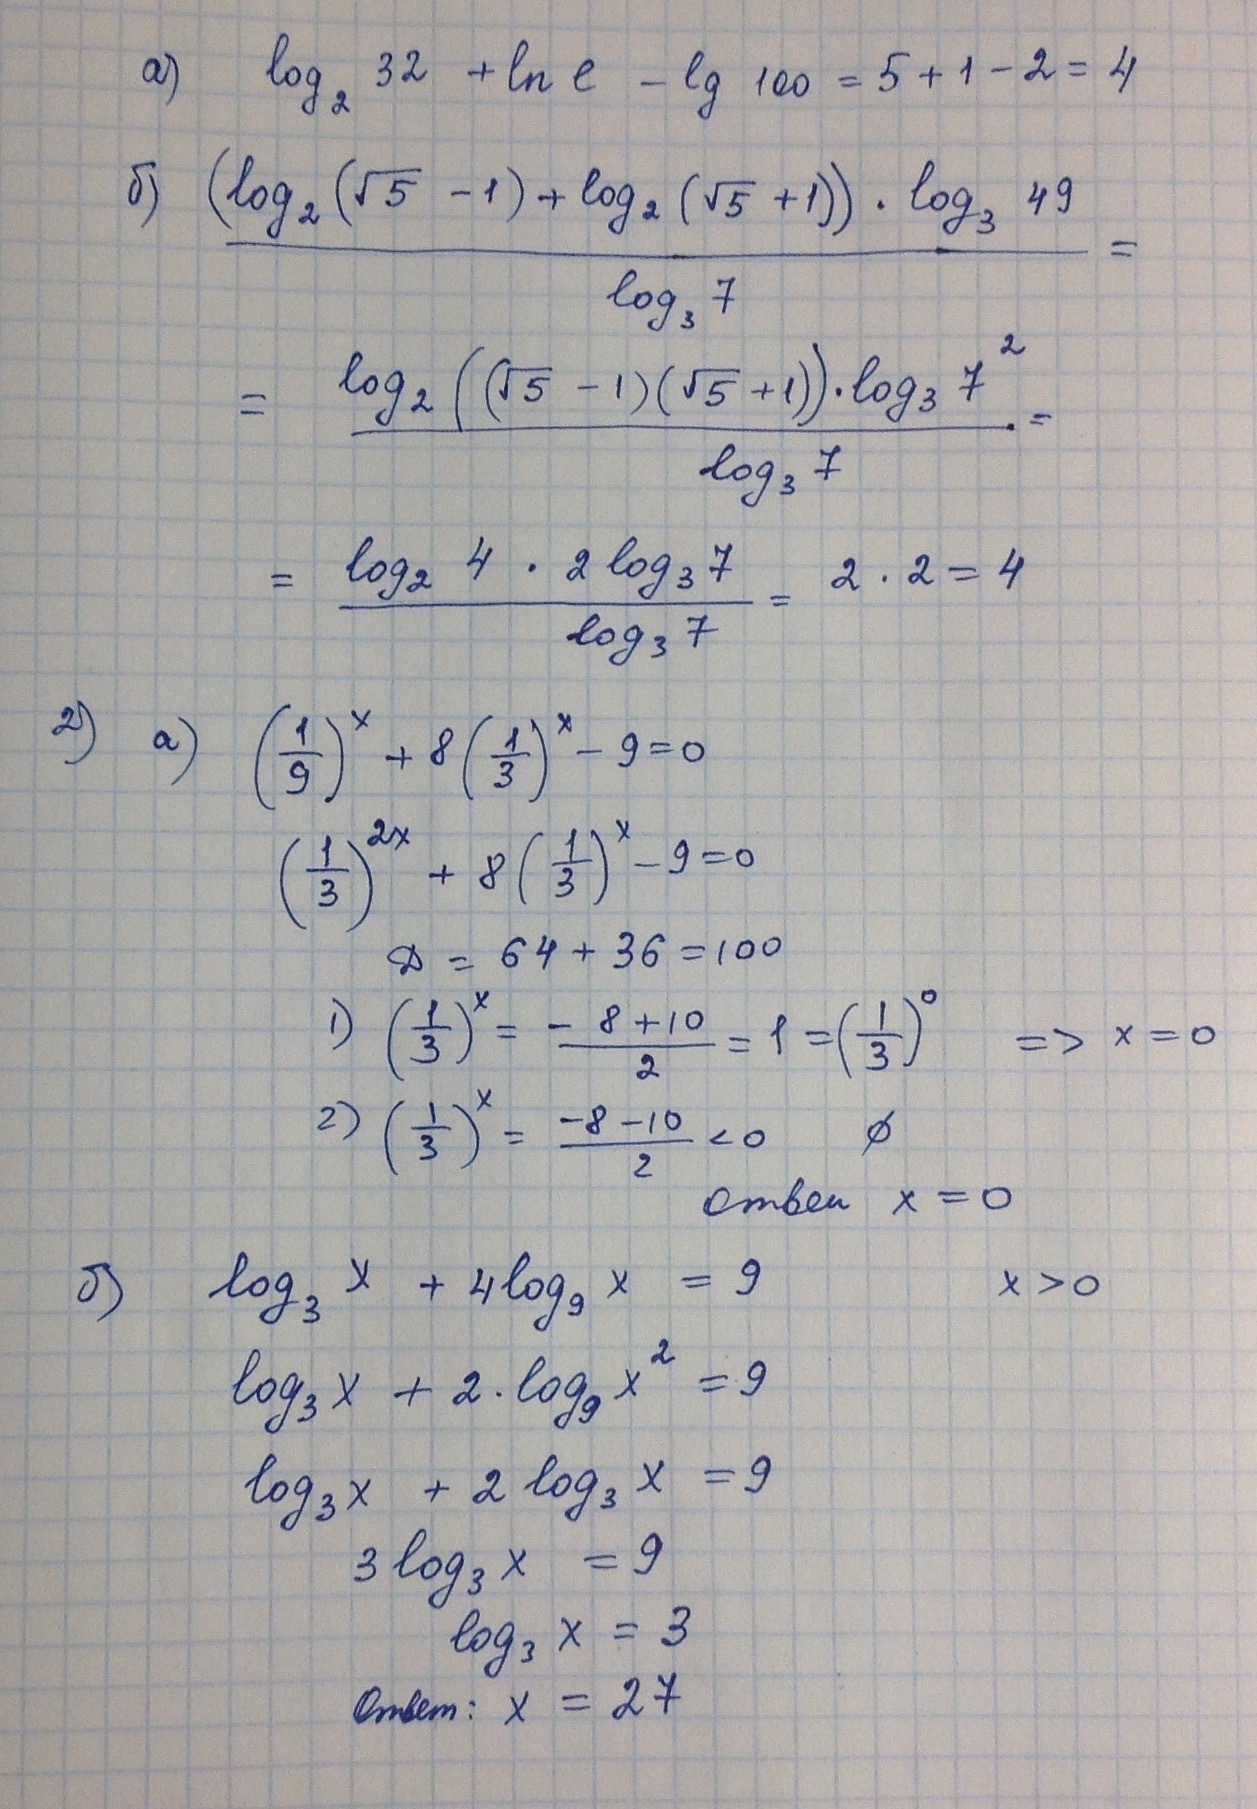 а) log₂ 32 + ln e - lg 100 = 5 + 1 - 2 = 4
б) (log₂(√5 - 1) + log₂(√5 + 1)) · log₃ 49 =
log₃ 7
= log₂((√5 - 1)(√5 + 1)) · log₃ 7² =
log₃ 7
= log₂ 4 · 2 log₃ 7 = 2 · 2 = 4
log₃ 7
2) а) (1/9)ˣ + 8(1/3)ˣ - 9 = 0
(1/3)²ˣ + 8(1/3)ˣ - 9 = 0
D = 64 + 36 = 100
1) (1/3)ˣ = (-8 + 10)/2 = 1 = (1/3)⁰ => x = 0
2) (1/3)ˣ = (-8 - 10)/2 < 0 ∅
Ответ x = 0
б) log₃ x + 4 log₉ x = 9 x > 0
log₃ x + 2 · log₉ x² = 9
log₃ x + 2 log₃ x = 9
3 log₃ x = 9
log₃ x = 3
Ответ: x = 27